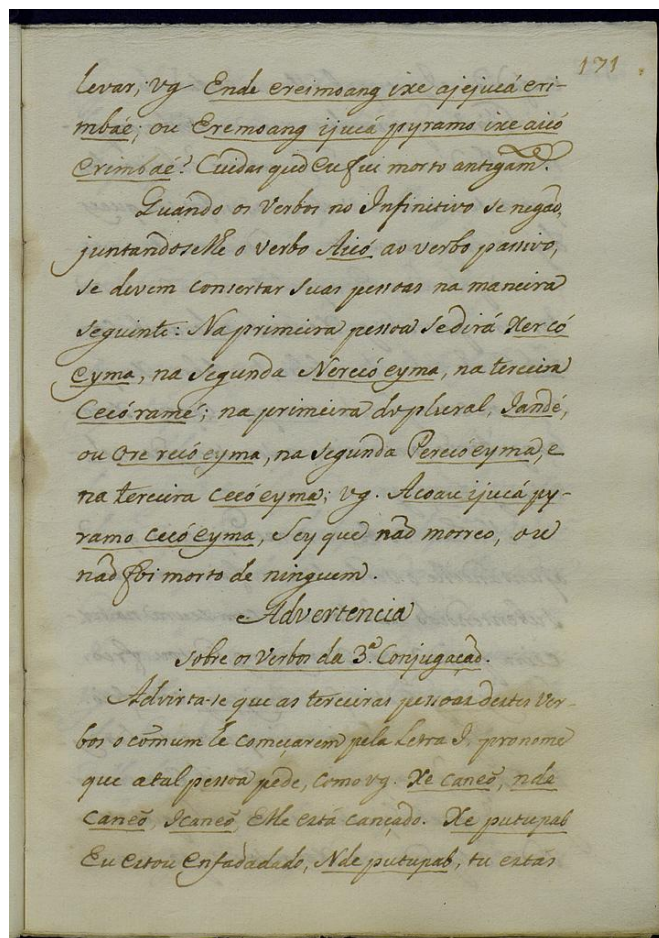 171
levar; vg Ende ereimoang ixe ajejucá eri-
mbaé; ou Eremoang ijucá pyramo ixe aicó
Erimbaé? Cuidas que Eu fui morto antigam.
Quando os Verbos no Infinitivo se negaõ,
juntandoselhe o verbo Aicó ao verbo passivo,
se devem Consertar suas pessoas na maneira
seguinte: Na primeira pessoa sedirá Xercó
Eyma, na segunda Nerecó eyma, na terceira
Cecórame; na primeira do plural, Jandé,
ou Ore recó eyma, na segunda Perecóeyma, e
na terceira Cecóeyma; vg. Acoau ijucá py-
ramo Cecóeyma, Sey que naõ morreo, ou
naõ foi morto de ninguem.
Advertencia
sobre os verbos da 3ª. Conjugaçaõ.
Advirta-se que as terceiras pessoas destes Ver-
bos o cõmum hé começarem pela Letra I, pronome
que atal pessoa pede, Como vg. Xe Caneõ, nde
Caneõ, Icaneõ, Elle está Cançado. Xe putupab
Eu estou Enfadadado, Nde putupab, tu estás